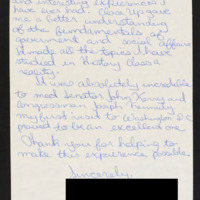 and interesting experiences I
have ever had. Close Up gave
me a better understanding
of the fundamentals of
government and social affairs
It made all the topics I have
studied in History class a
reality.
It was absolutely incredible
to meet Senator John Kerry and
Congressman Joseph Kennedy
My first visit to Washington D.C.
proved to be an excellent one
Thank you for helping to
make this experience possible
Sincerely,